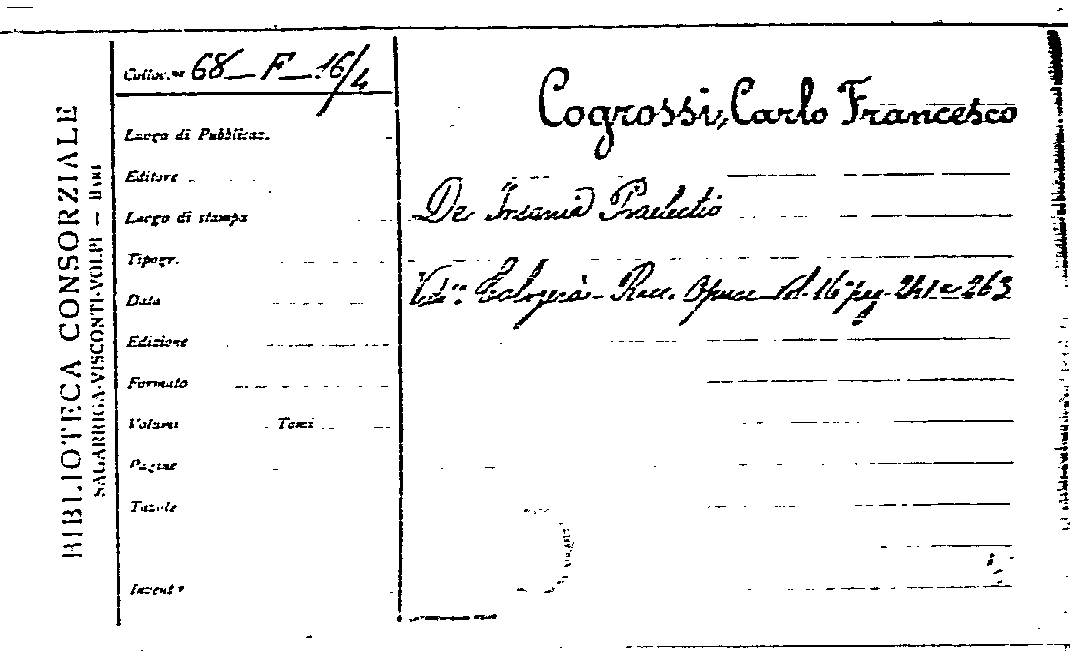 BIBLIOTECA CONSORZIALE
SAGARRIGA-VISCONTI-VOLPI — BARI
Colloc.ne 68 — F — 16/4
Luogo di Pubblicaz.
Editore
Luogo di stampa
Tipogr.
Data
Edizione
Formato
Volumi Tomi
Pagine
Tavole
Invent.
Cogrossi, Carlo Francesco
De Insania Praelectio
Calogerà - Racc. Opusc. 16° pag. 241 a 263